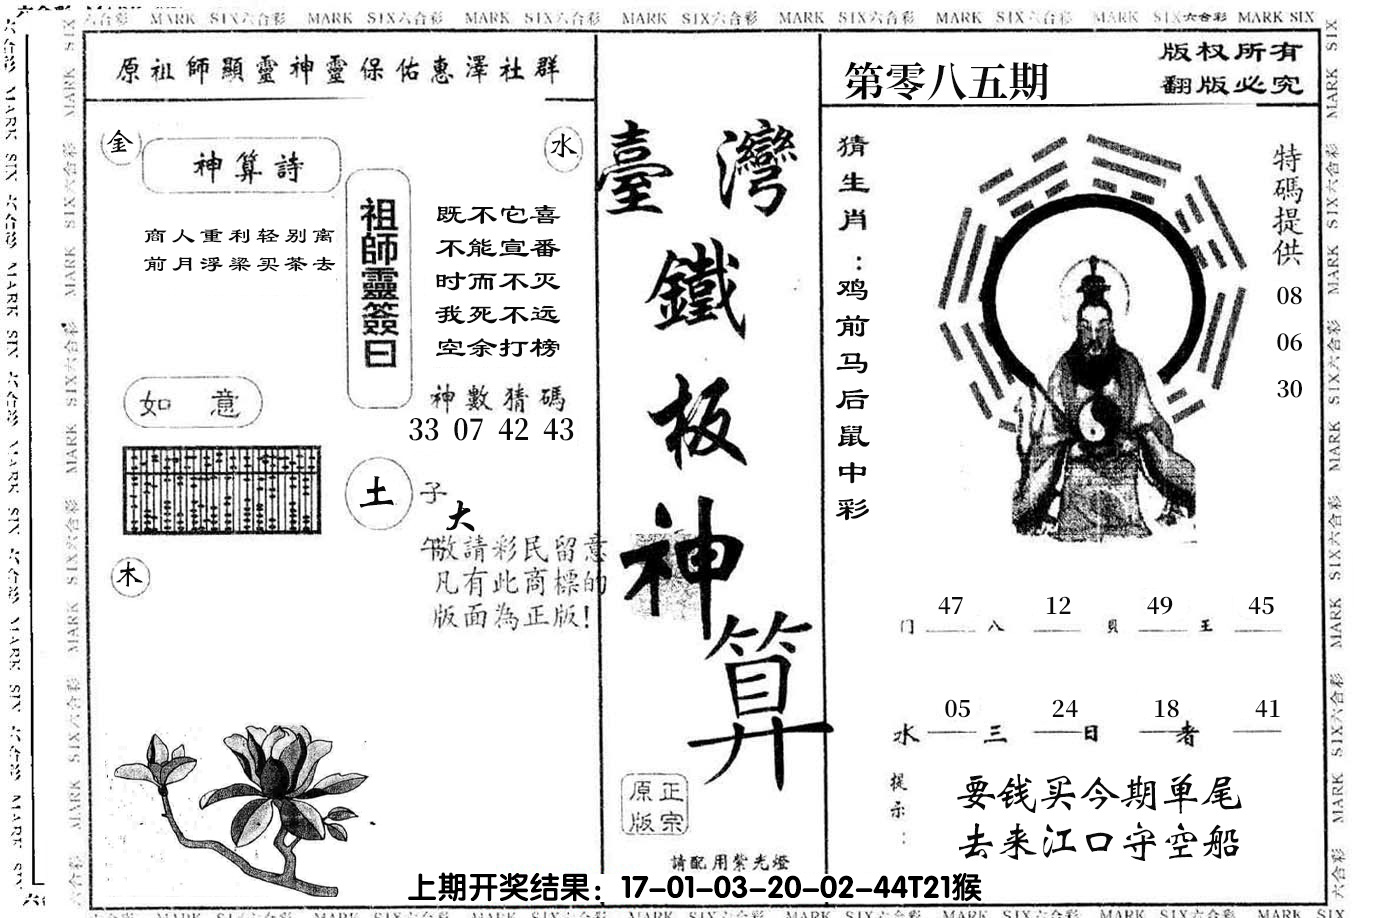 MARK SIX六合彩 MARK SIX六合彩 MARK SIX六合彩 MARK SIX六合彩 MARK SIX六合彩 MARK SIX六合彩 MARK SIX六合彩 MARK SIX
原祖師顯靈神靈保佑惠澤社群
金
水
神算詩
商人重利轻别离
前月浮梁买茶去
祖師靈簽曰
既不它喜
不能宣番
时而不灭
我死不远
空余打榜
如意
神數猜碼
33 07 42 43
土
子
大
午敬請彩民留意
凡有此商標的
版面為正版!
木
臺灣
鐵
板
神
算
正宗
原版
請配用紫光燈
第零八五期
版权所有
翻版必究
猜生肖:鸡前马后鼠中彩
特碼提供
08
06
30
47 12 49 45
门 八 贝 王
05 24 18 41
水 三 日 者
提示:
要钱买今期单尾
去来江口守空船
上期开奖结果:17-01-03-20-02-44T21猴